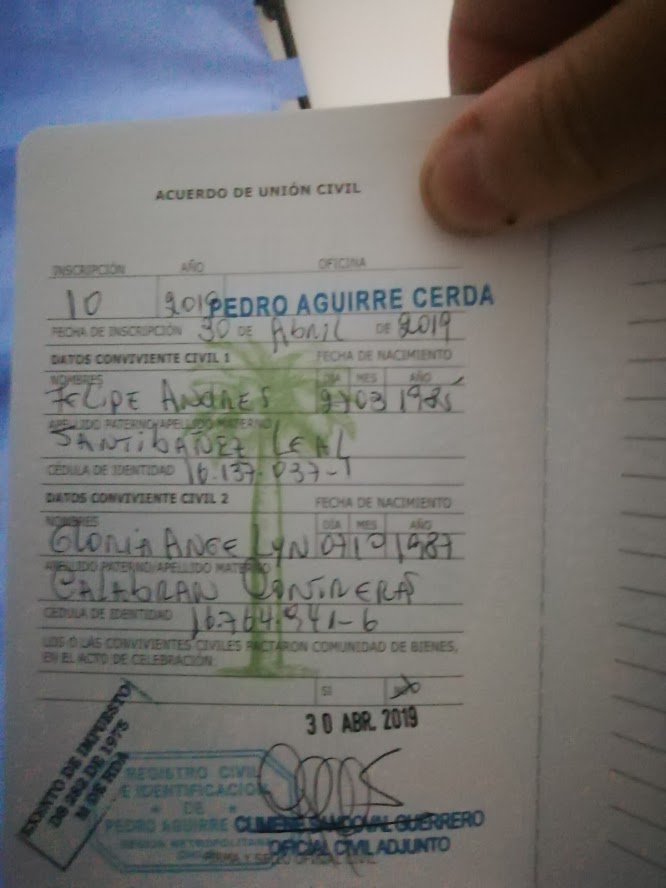 ACUERDO DE UNIÓN CIVIL
INSCRIPCIÓN AÑO OFICINA
10 2019 PEDRO AGUIRRE CERDA
FECHA DE INSCRIPCIÓN 30 DE Abril DE 2019
DATOS CONVIVIENTE CIVIL 1 FECHA DE NACIMIENTO
NOMBRES DÍA MES AÑO
FELIPE ANDRES 03 1985
APELLIDO PATERNO/APELLIDO MATERNO
SANTIBAÑEZ LEAL
CÉDULA DE IDENTIDAD 16.137.037-1
DATOS CONVIVIENTE CIVIL 2 FECHA DE NACIMIENTO
NOMBRES DÍA MES AÑO
GLORIA ANGELYN 07 1987
APELLIDO PATERNO/APELLIDO MATERNO
CALABRAN CONTRERAS
CÉDULA DE IDENTIDAD 16.764.941-6
LOS O LAS CONVIVIENTES CIVILES PACTARON COMUNIDAD DE BIENES,
EN EL ACTO DE CELEBRACIÓN:
SI
30 ABR. 2019
EXENTO DE IMPUESTO
DE 1975
REGISTRO CIVIL
E IDENTIFICACION
DE
PEDRO AGUIRRE
REGION METROPOLITANA
CLIMENE SANDOVAL GUERRERO
OFICIAL CIVIL ADJUNTO
FIRMA Y SELLO OFICIAL CIVIL